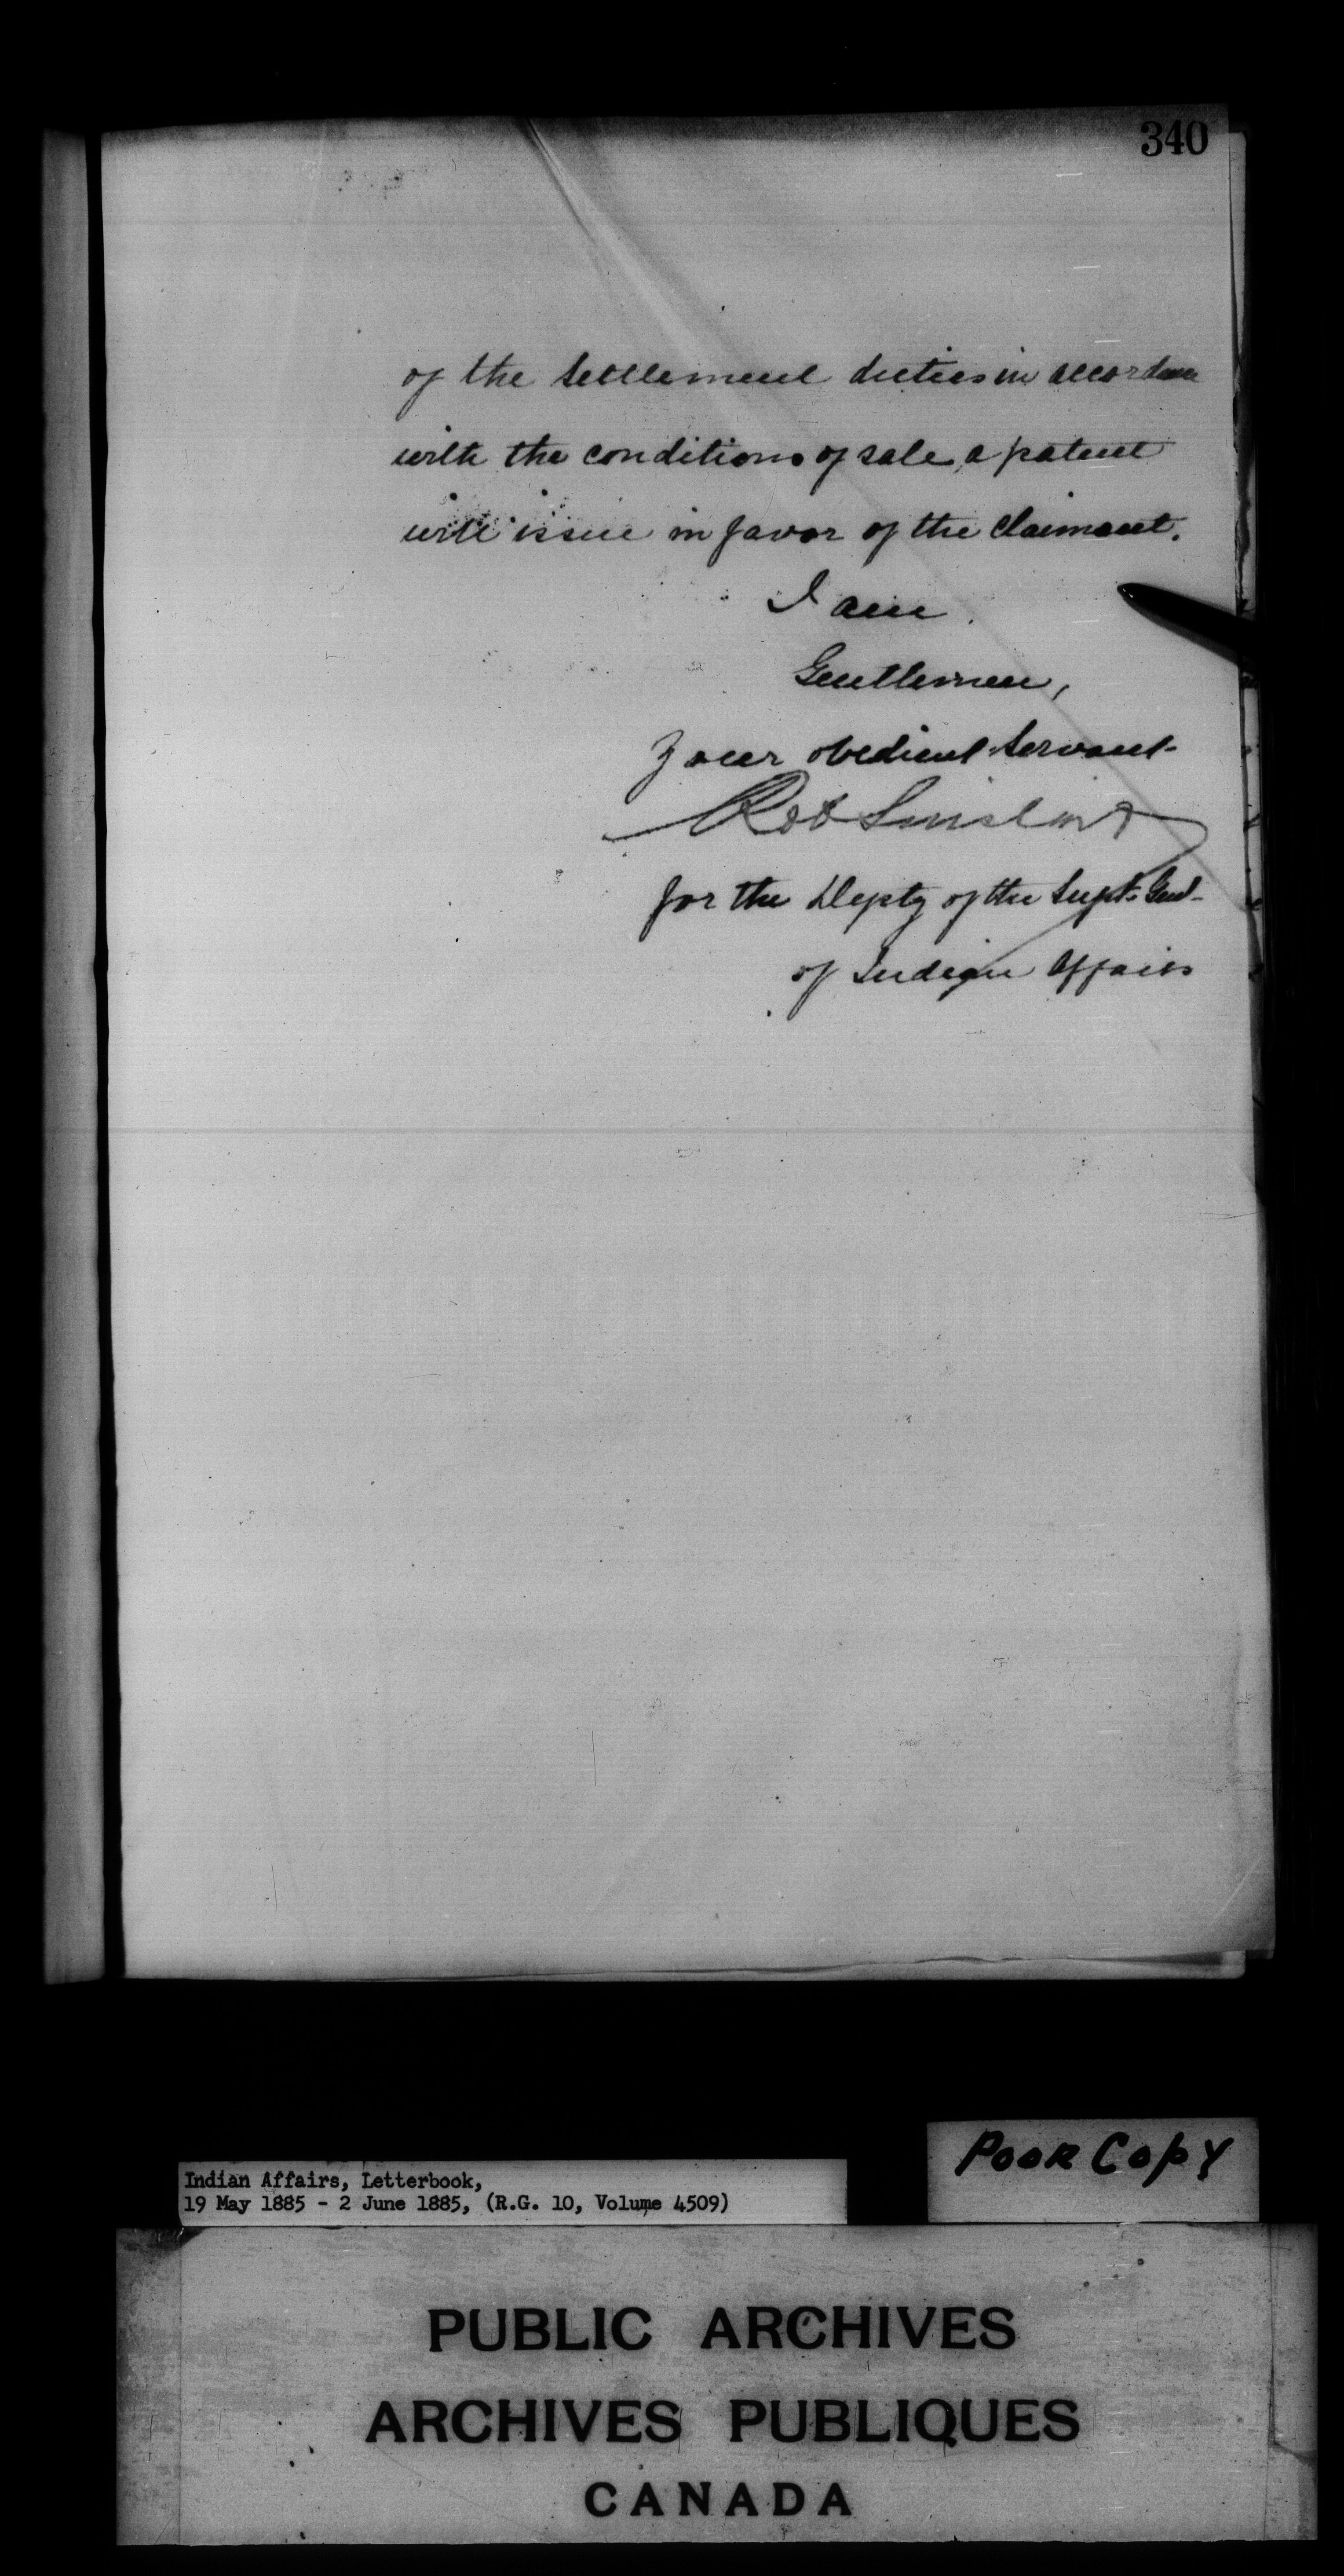 340
of the Settlement duties in accordance
with the conditions of sale, a patent
will issue in favor of the Claimant.
I am
Gentlemen,
Your obedient Servant
Rob Sinclair
for the Depty of the Supt. Genl
of Indian Affairs
Poor Copy
Indian Affairs, Letterbook,
19 May 1885 - 2 June 1885, (R.G. 10, Volume 4509)
PUBLIC ARCHIVES
ARCHIVES PUBLIQUES
CANADA